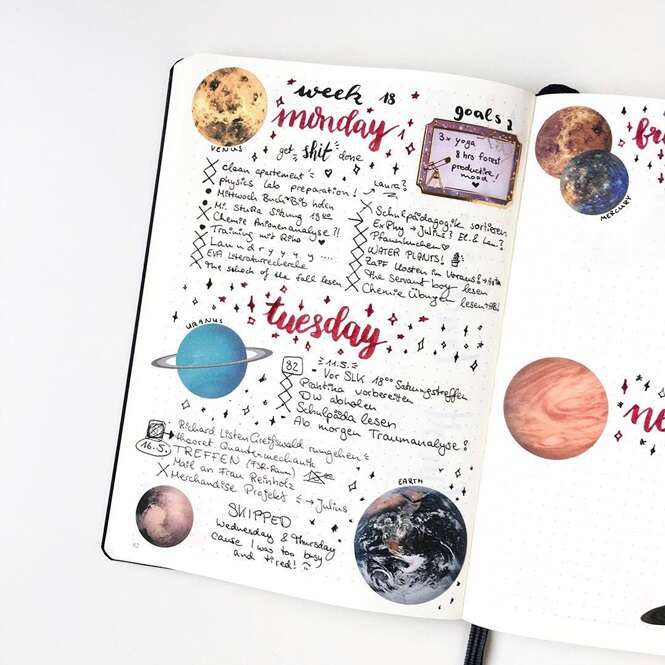 week 18
monday
get shit done
goals
3x yoga
8 hrs forest
productive
mood ♥
VENUS
clean apartement ♥
physics lab preparation!
Mittwoch Buch Bib holen
Mi. StuRa Sitzung 18
Chemie Anionenanalyse?!
Training mit Riho ♥
Laundryyyy....
EvA Literaturrecherche
The stench of the fall lesen
Laura?
Schulpädagogik sortieren
ExPhy → Julius? El. & Lau?
Pfannkuchen ♥
WATER PLANTS!
ZaPF Kosten im Voraus?
The servant boy lesen
Chemie Übungen lesen
tuesday
URANUS
82
11.5.
Vor SLK 18⁰⁰ Satzungstreffen
Praktika vorbereiten
DW abholen
Schulpäda lesen
Ab morgen Traumanalyse?
Richard Listen Greifswald rumgehen
theoret. Quantenmechanik
16.5.
TREFFEN (FSR-Raum)
Mail an Frau Reinholz
Merchandise Projekt → Julius
SKIPPED
Wednesday & Thursday
cause I was too busy
and tired!
EARTH
MERCURY
fr
ne